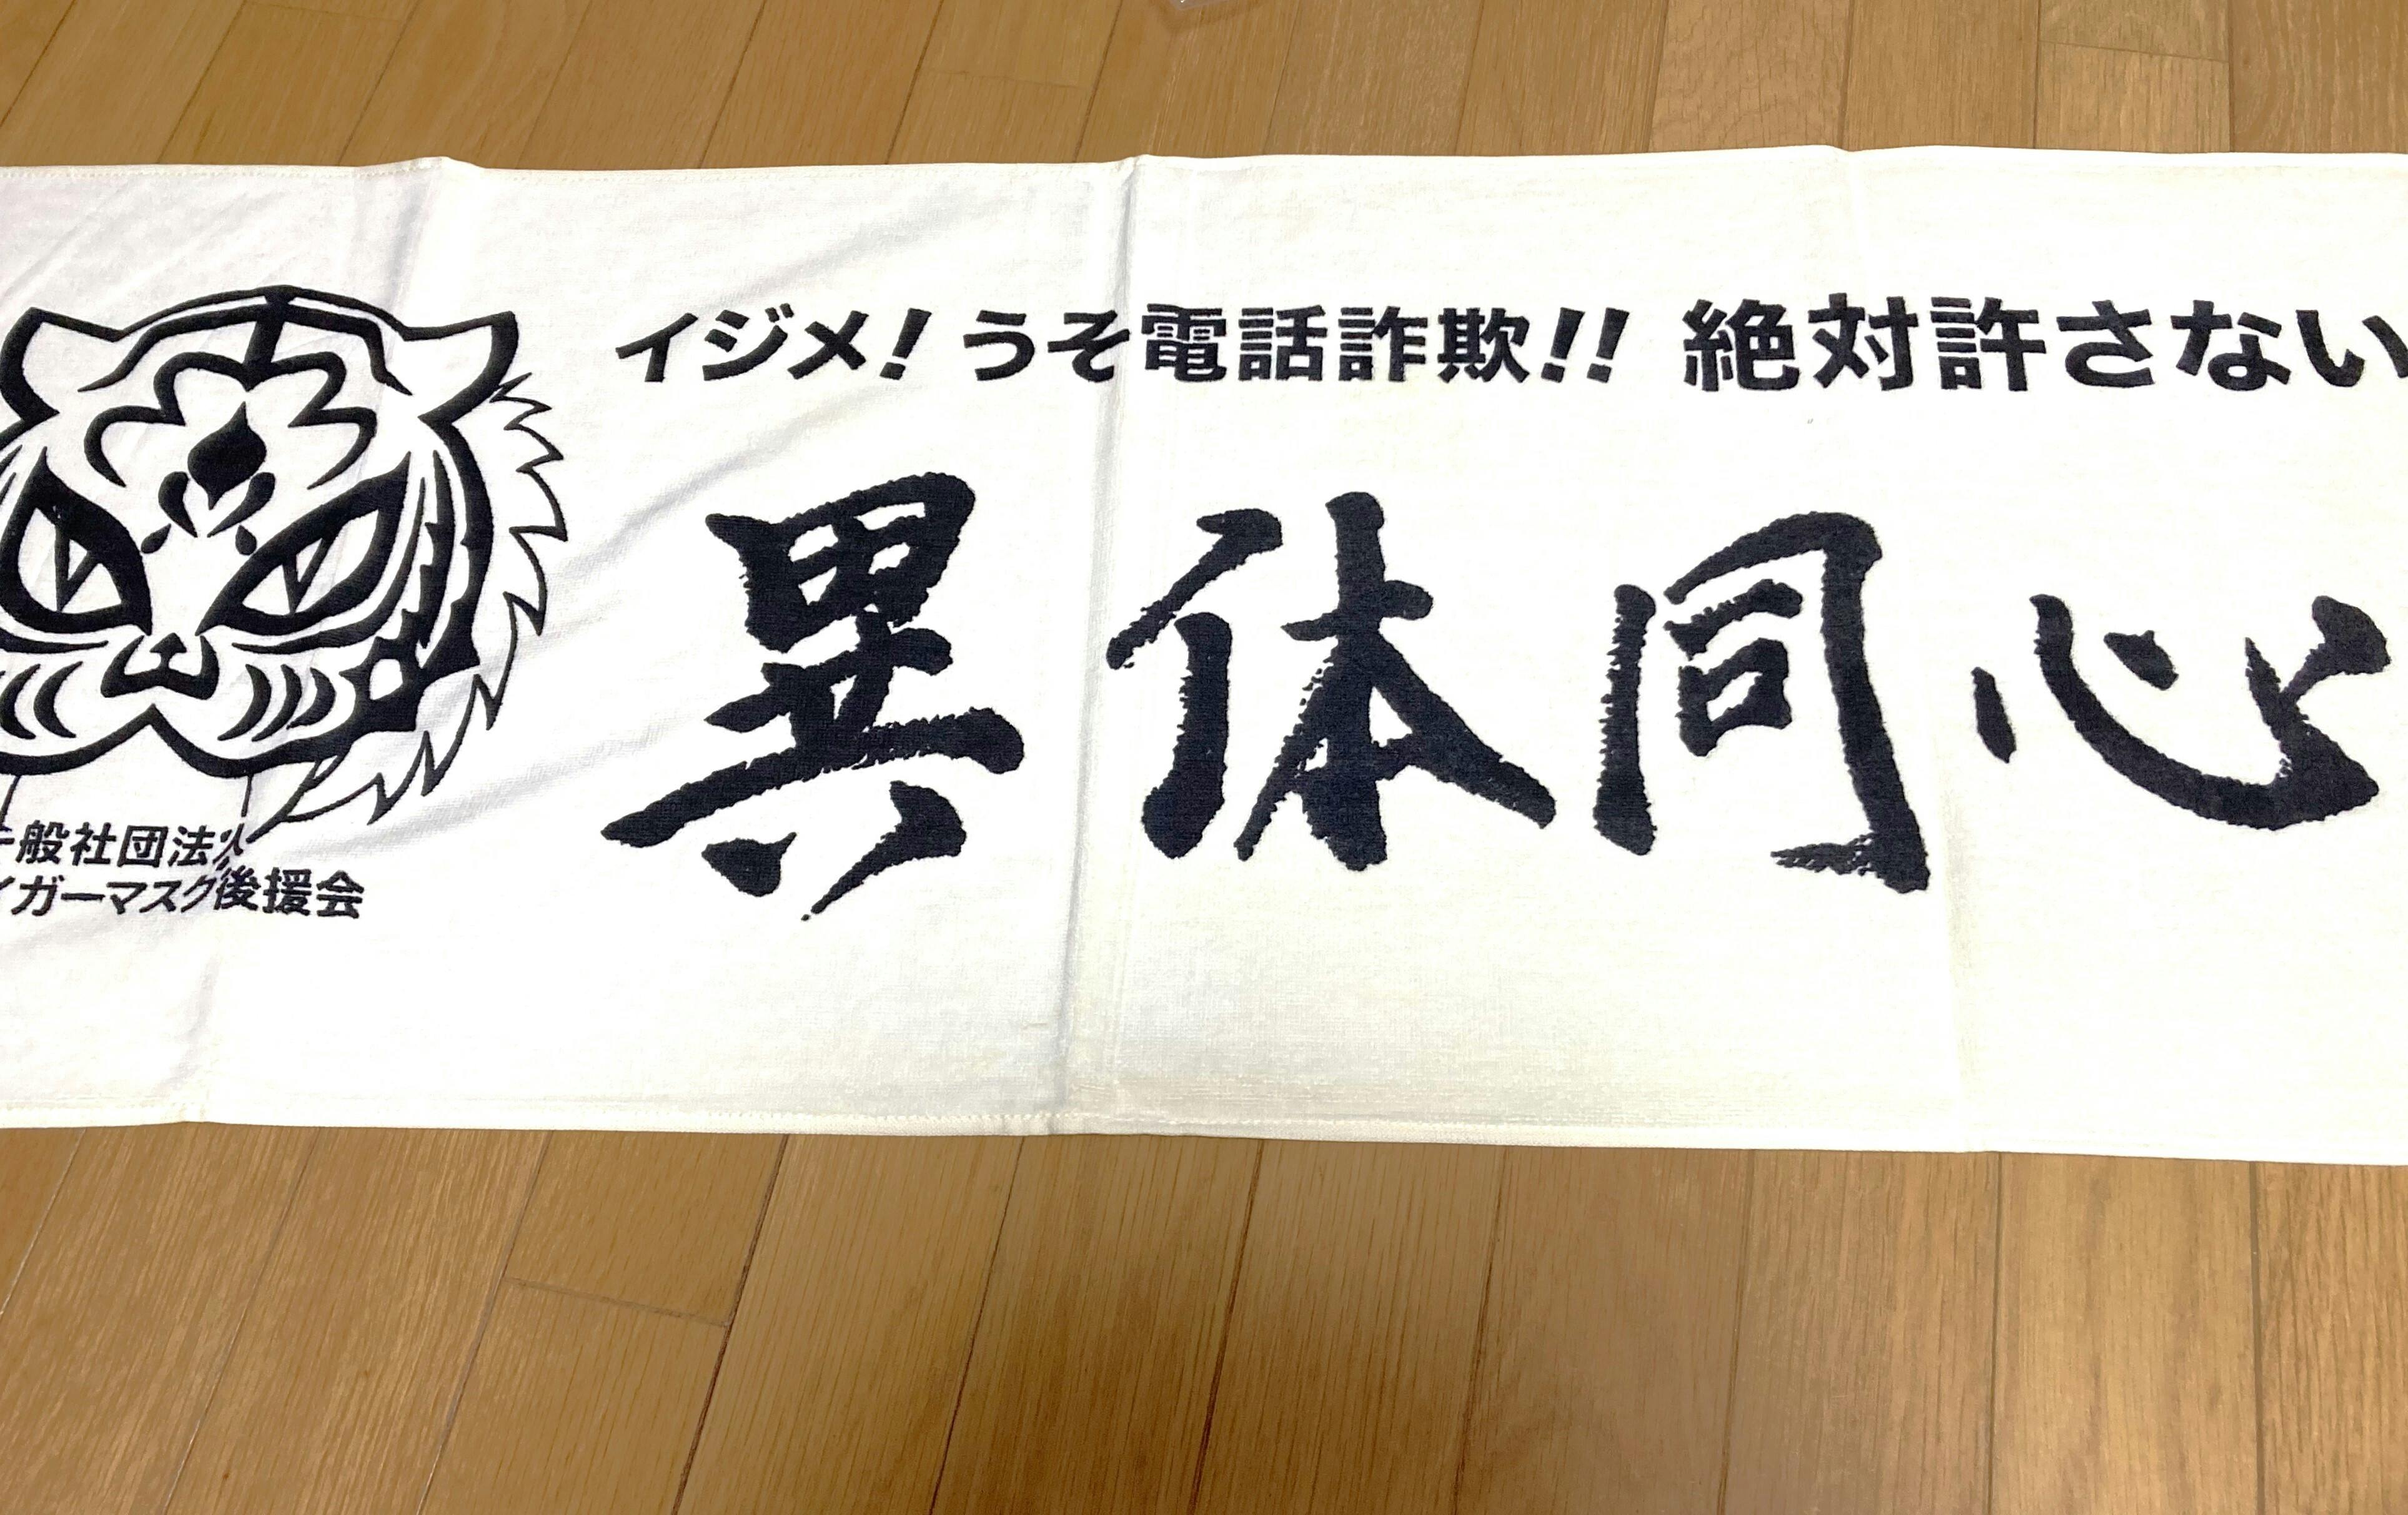 イジメ！うそ電話詐欺!! 絶対許さない
異体同心
一般社団法人
イガーマスク後援会